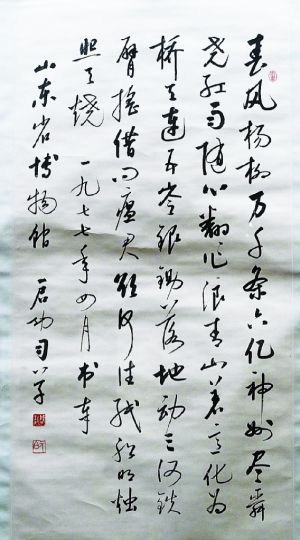 春风杨柳万千条六亿神州尽舜
尧红雨随心翻作浪青山著意化为
桥天连五岭银锄落地动三河铁
臂摇借问瘟君欲何往纸船明烛
照天烧 一九七七年四月书奉
山东省博物馆 启功习字